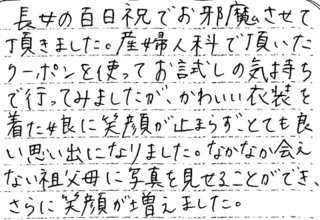 長女の百日祝でお邪魔させて
頂きました。産婦人科で頂いた
クーポンを使ってお試しの気持ち
で行ってみましたが、かわいい衣装を
着た娘に笑顔が止まらずとても良
い思い出になりました。なかなか会え
ない祖父母に写真を見せることができ、
さらに笑顔が増えました。